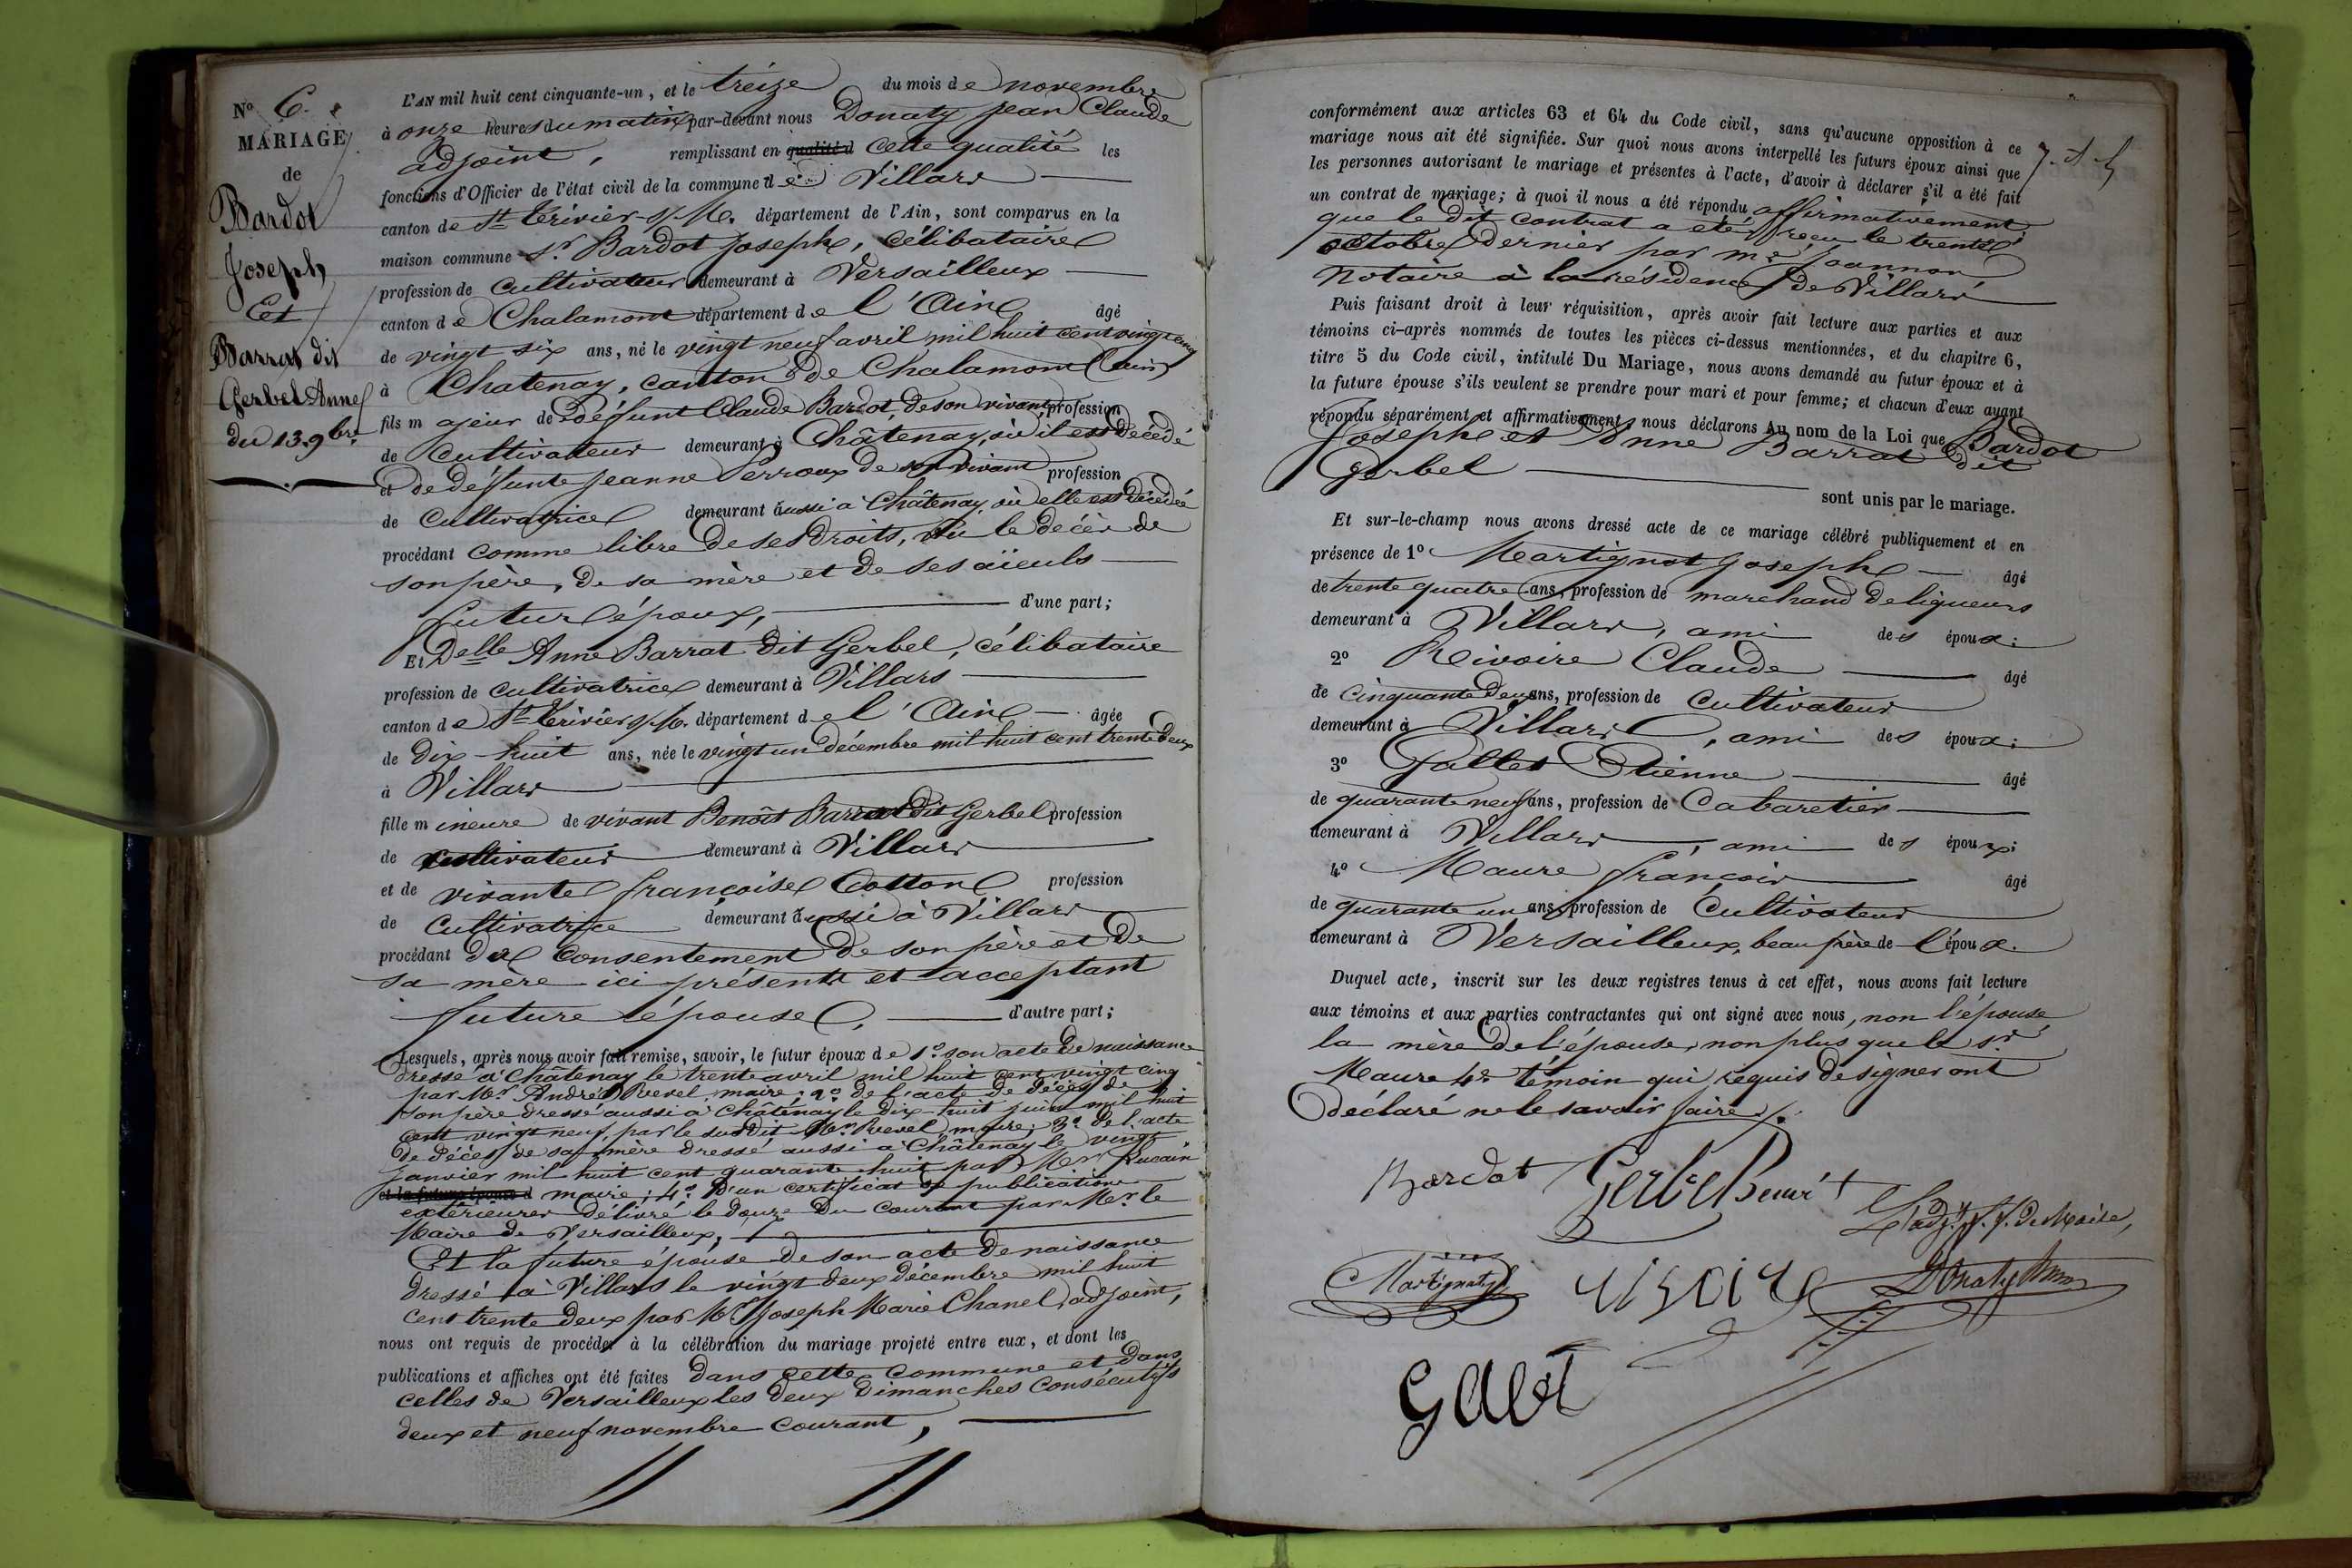 N° 6.
MARIAGE
de
Bardot
Joseph
Et
Barrat dit
Gerbel Anne
du 13. 9bre
L'AN mil huit cent cinquante-un, et le treize du mois de novembre
à onze heures du matin par-devant nous Donaty Jean Claude
adjoint, remplissant en qualité d cette qualité les
fonctions d'Officier de l'état civil de la commune de Villars
canton de St Trivier s/M. département de l'Ain, sont comparus en la
maison commune Sr Bardot Joseph, célibataire
profession de cultivateur demeurant à Versailleux
canton de Chalamont département de l'Ain âgé
de vingt six ans, né le vingt neuf avril mil huit cent vingt cinq
à Chatenay, canton de Chalamont (ain)
fils majeur de défunt Claude Bardot, de son vivant profession
de cultivateur demeurant à Châtenay, où il est décédé
et de défunte Jeanne Perroux de son vivant profession
de cultivatrice demeurant aussi à Châtenay, où elle est décédée
procédant comme libre de ses droits, vu le décès de
son père, de sa mère et de ses aïeuls
futur époux, d'une part;
Et Delle Anne Barrat dit Gerbel, célibataire
profession de cultivatrice demeurant à Villars
canton de St Trivier s/M. département de l'Ain âgée
de dix-huit ans, née le vingt un décembre mil huit cent trente deux
à Villars
fille mineure de vivant Benoît Barrat dit Gerbel profession
de cultivateur demeurant à Villars
et de vivante françoise Cotton profession
de cultivatrice demeurant aussi à Villars
procédant du consentement de son père et de
sa mère ici présents et acceptant
future épouse, d'autre part;
Lesquels, après nous avoir fait remise, savoir, le futur époux de 1° son acte de naissance
dressé à Châtenay le trente avril mil huit cent vingt cinq
par Mr André Revel, maire; 2° de l'acte de décès de
son père dressé aussi à Châtenay le dix-huit juin mil huit
cent vingt neuf, par le susdit Mr Revel maire; 3° de l'acte
de décès de sa mère dressé aussi à Châtenay le vingt
janvier mil huit cent quarante huit par Mr
et la future épouse d maire; 4° d'un certificat de publications
extérieures délivré le douze du courant par Mr le
Maire de Versailleux,
Et la future épouse de son acte de naissance
dressé à Villars le vingt deux décembre mil huit
cent trente deux par Mr Joseph Marie Chanel, adjoint,
nous ont requis de procéder à la célébration du mariage projeté entre eux, et dont les
publications et affiches ont été faites dans cette commune et dans
celles de Versailleux les deux dimanches consécutifs
deux et neuf novembre courant,
conformément aux articles 63 et 64 du Code civil, sans qu'aucune opposition à ce
mariage nous ait été signifiée. Sur quoi nous avons interpellé les futurs époux ainsi que
les personnes autorisant le mariage et présentes à l'acte, d'avoir à déclarer s'il a été fait
un contrat de mariage; à quoi il nous a été répondu affirmativement
que le dit contrat a été reçu le trente
octobre dernier par me Joannon
notaire à la résidence de Villars
Puis faisant droit à leur réquisition, après avoir fait lecture aux parties et aux
témoins ci-après nommés de toutes les pièces ci-dessus mentionnées, et du chapitre 6,
titre 5 du Code civil, intitulé Du Mariage, nous avons demandé au futur époux et à
la future épouse s'ils veulent se prendre pour mari et pour femme; et chacun d'eux ayant
répondu séparément et affirmativement, nous déclarons Au nom de la Loi que Bardot
Joseph et Anne Barrat dit
Gerbel
sont unis par le mariage.
Et sur-le-champ nous avons dressé acte de ce mariage célébré publiquement et en
présence de 1° Martignat Joseph âgé
de trente quatre ans, profession de marchand de liqueurs
demeurant à Villars, ami des époux;
2° Rivoire Claude âgé
de cinquante deux ans, profession de cultivateur
demeurant à Villars, ami des époux;
3° Gallet Etienne âgé
de quarante neuf ans, profession de Cabaretier
demeurant à Villars, ami des époux;
4° Maure françois âgé
de quarante un ans, profession de Cultivateur
demeurant à Versailleux, beau frère de l'époux.
Duquel acte, inscrit sur les deux registres tenus à cet effet, nous avons fait lecture
aux témoins et aux parties contractantes qui ont signé avec nous, non l'épouse
la mère de l'épouse, non plus que le sr
Maure 4e témoin qui requis de signer ont
déclaré ne le savoir faire.
Bardot
L'adjt f.f. de Maire,
Martignat
Donaty